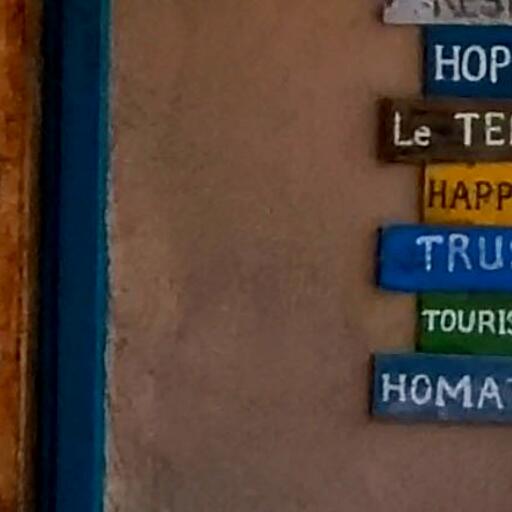 HOP
Le TE
HAPP
TRUS
TOURIS
HOMA